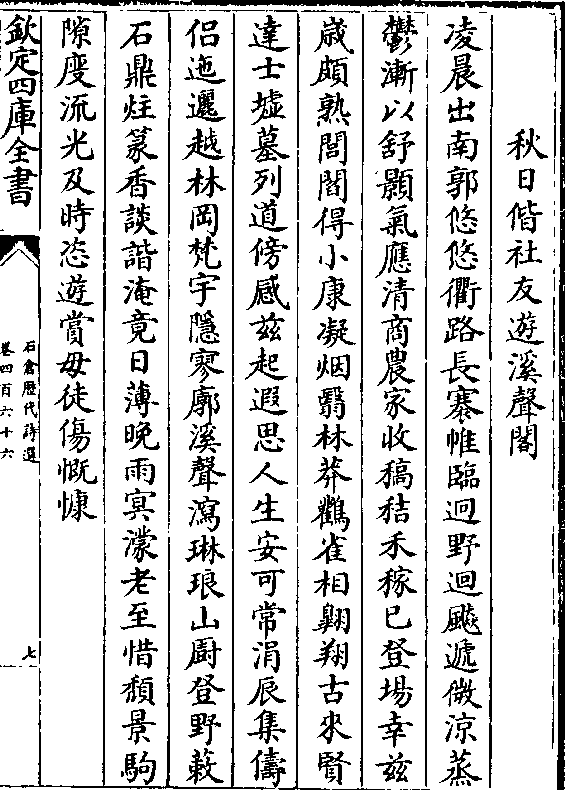 秋日偕社友遊溪聲閣
凌晨出南郭悠悠衢路長褰帷臨迥野迴飈遞微涼蒸
鬱漸以舒顥氣應清商農家收稿秸禾稼已登場幸兹
歳頗熟閭閻得小康凝烟翳林莽鸛雀相翺翔古來賢
達士墟墓列道傍感兹起遐思人生安可常涓辰集儔
侣迤邐越林岡梵宇隱寥廓溪聲瀉琳琅山厨登野蔌
石鼎炷篆香談諧淹竟日薄晩雨冥濛老至惜頽景駒
隙度流光及時恣遊賞毋徒傷慨慷
欽定四庫全書
石倉歴代詩選
卷四百六十六
七